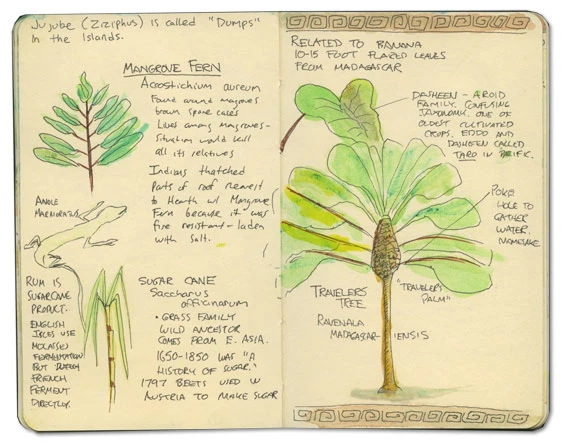 Jujube (Ziziphus) is called "Dumps"
in the Islands.
MANGROVE FERN
Acrostichium aureum
Found around mangroves
brown spore cases
Lives among mangroves-
situation would kill
all its relatives
Indians thatched
Parts of roof nearest
to Hearth w/ Mangrove
Fern because it was
fire resistant - laden
with salt.
ANOLE
MARMORATUS
RUM IS
SUGARCANE
PRODUCT.
ENGLISH
ISLES USE
MOLASSES
FERMENTATION
BUT
FRENCH
FERMENT
DIRECTLY.
SUGAR CANE
Saccharus
officinarum
• GRASS FAMILY
WILD ANCESTOR
COMES FROM E. ASIA.
1650-1850 WAS "A
HISTORY OF SUGAR."
1797 BEETS USED IN
AUSTRIA TO MAKE SUGAR
RELATED TO BANANA
10-15 FOOT FLARED LEAVES
FROM MADAGASCAR
DASHEEN - AROID
FAMILY. CONFUSING
TAXONOMY. ONE OF
OLDEST CULTIVATED
CROPS. EDDO AND
DASHEEN CALLED
TARO IN PACIFIC.
POKE
HOLE TO
GATHER
WATER.
NAMESAKE
TRAVELERS
TREE
"TRAVELER'S
PALM"
RAVENALA
MADAGASCAR-IENSIS